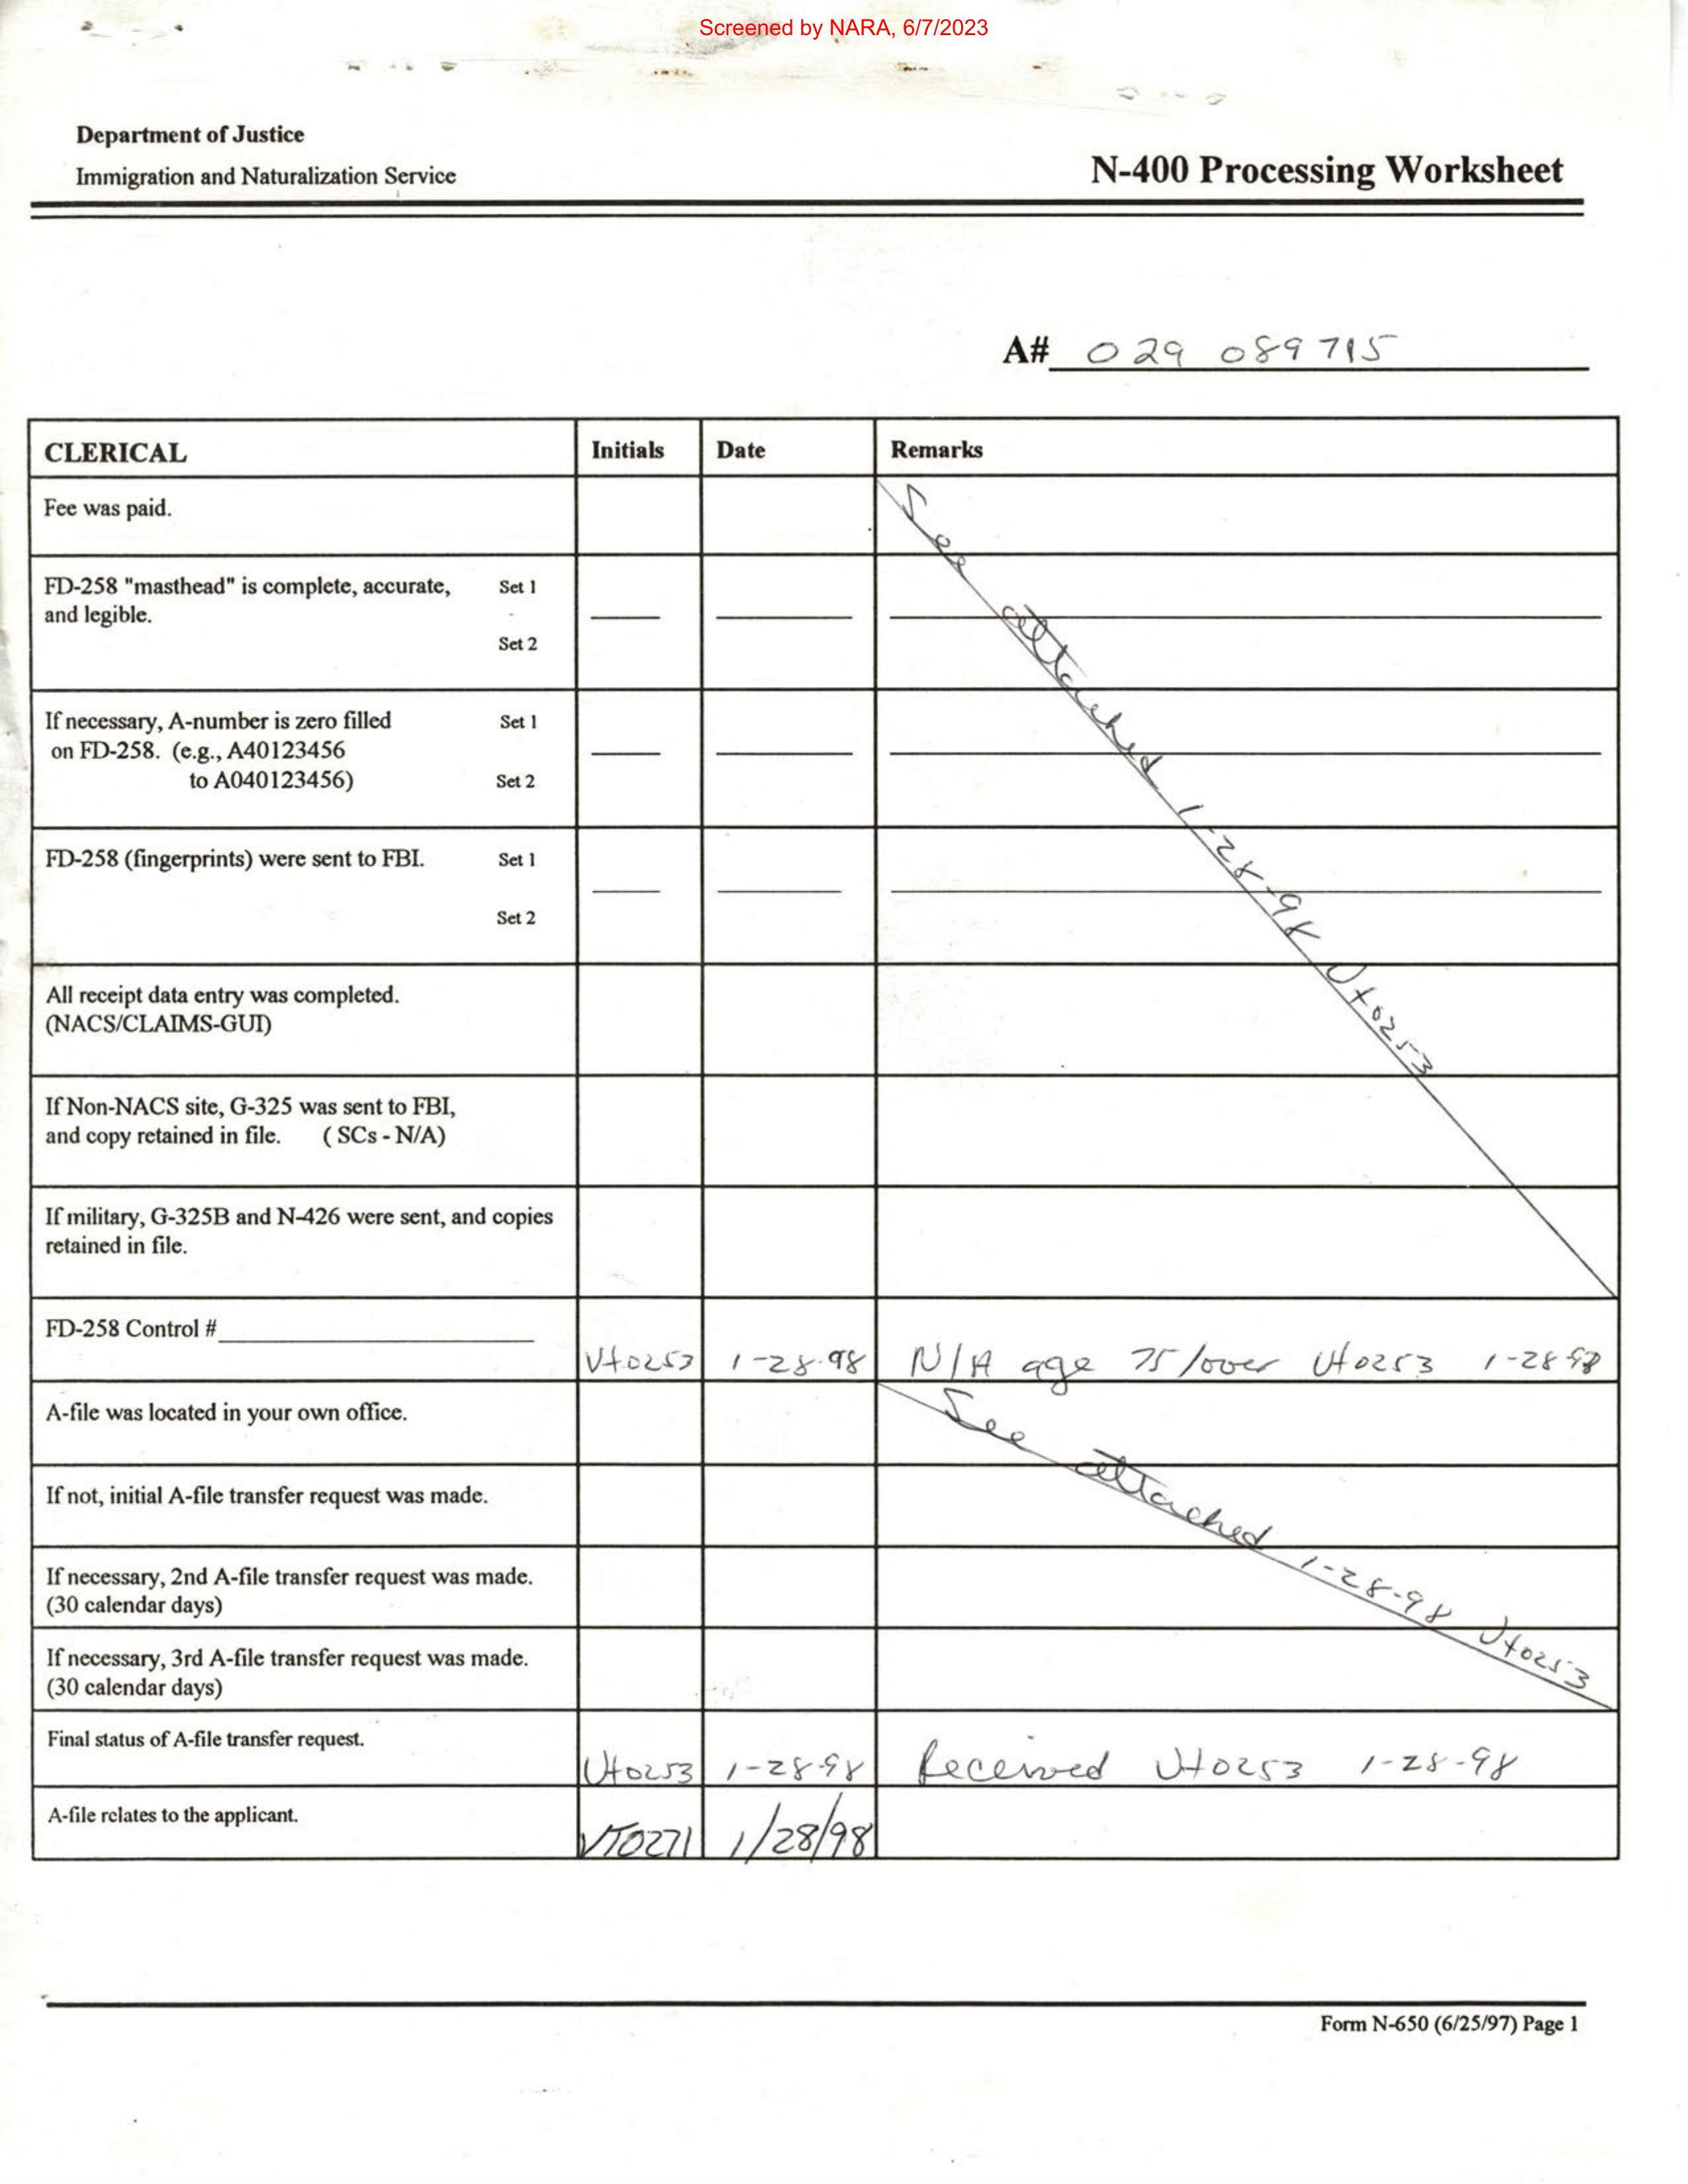 Screened by NARA, 6/7/2023
Department of Justice
Immigration and Naturalization Service
N-400 Processing Worksheet
A# 029 089715
CLERICAL Initials Date Remarks
Fee was paid.
FD-258 "masthead" is complete, accurate, Set 1
and legible.
Set 2
If necessary, A-number is zero filled Set 1
on FD-258. (e.g., A40123456
to A040123456) Set 2
FD-258 (fingerprints) were sent to FBI. Set 1
Set 2
See attached 1-28-98 Vt0253
All receipt data entry was completed.
(NACS/CLAIMS-GUI)
If Non-NACS site, G-325 was sent to FBI,
and copy retained in file. ( SCs - N/A)
If military, G-325B and N-426 were sent, and copies
retained in file.
FD-258 Control #
Vt0253 1-28-98 N/A age 75/over Vt0253 1-28-98
A-file was located in your own office.
If not, initial A-file transfer request was made.
See attached 1-28-98 Vt0253
If necessary, 2nd A-file transfer request was made.
(30 calendar days)
If necessary, 3rd A-file transfer request was made.
(30 calendar days)
Final status of A-file transfer request.
Vt0253 1-28-98 Received Vt0253 1-28-98
A-file relates to the applicant.
VT0271 1/28/98
Form N-650 (6/25/97) Page 1